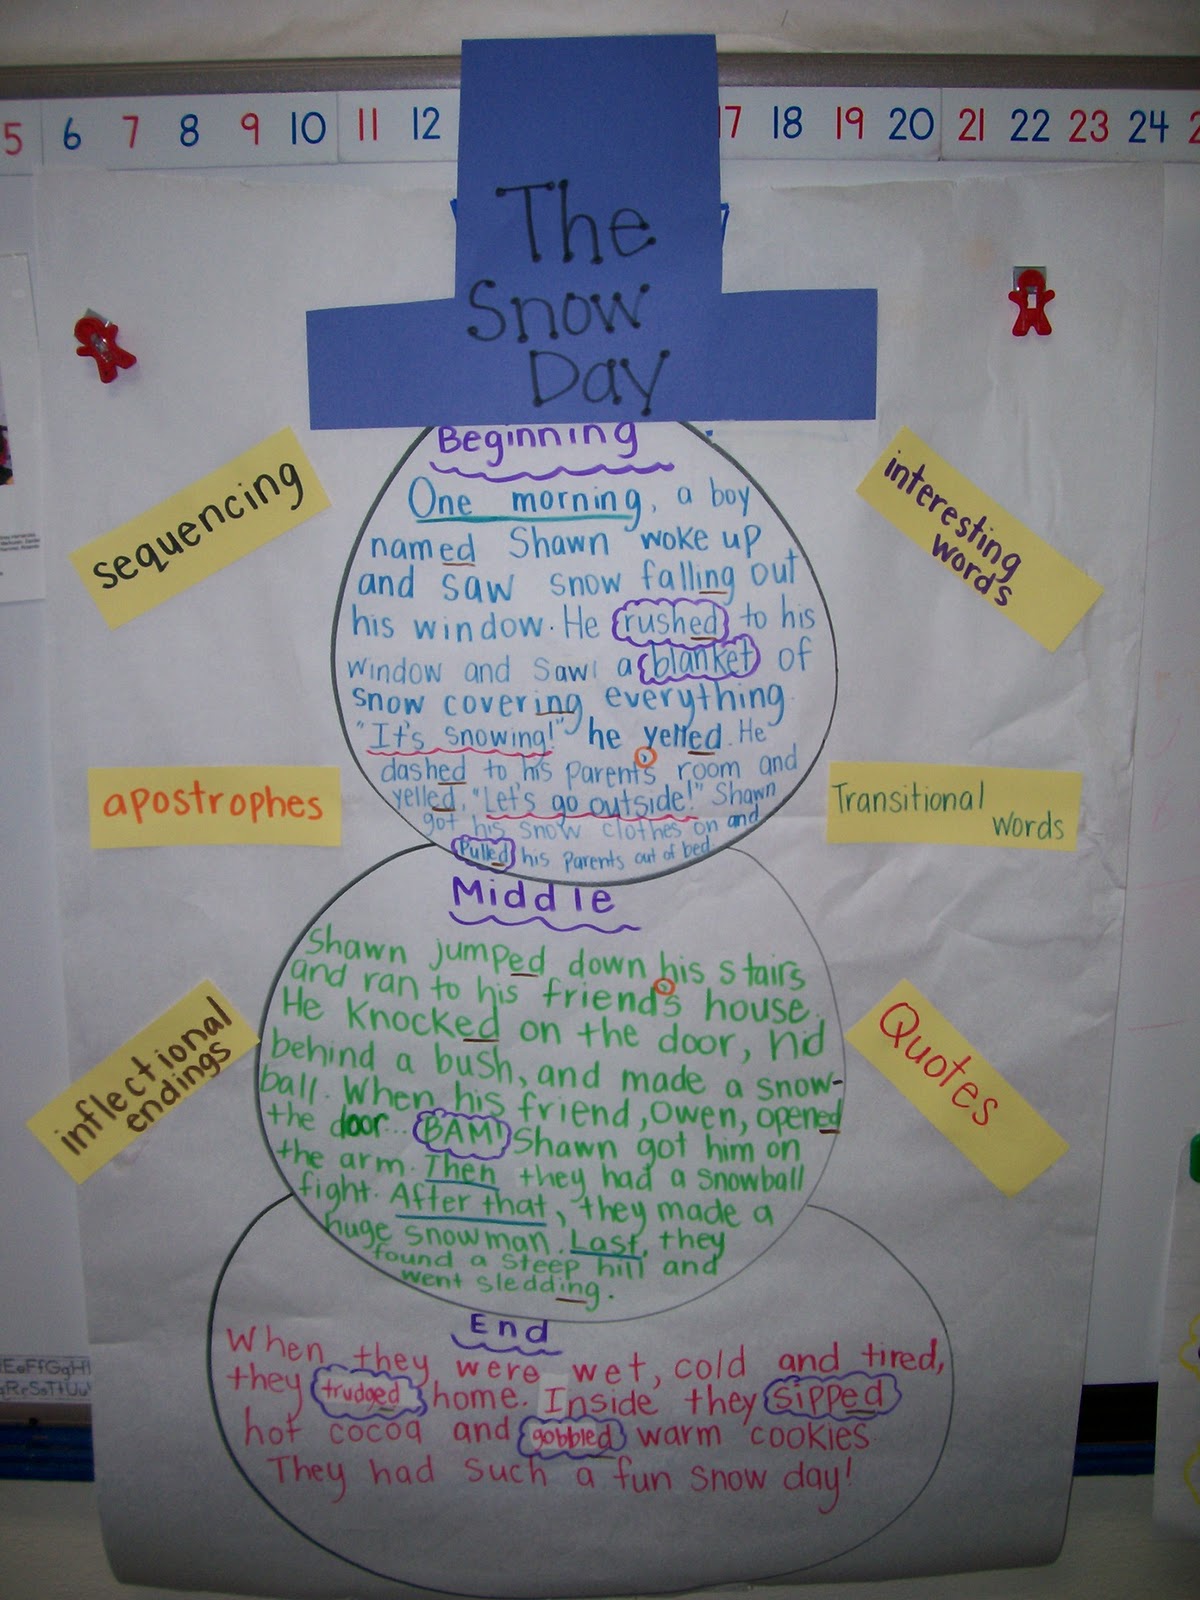 5 6 7 8 9 10 11 12 17 18 19 20 21 22 23 24
The
Snow
Day
sequencing
interesting
words
apostrophes
Transitional
words
inflectional
endings
Quotes
Beginning
One morning, a boy
named Shawn woke up
and saw snow falling out
his window. He rushed to his
window and saw a blanket of
snow covering everything.
"It's snowing!" he yelled. He
dashed to his parent's room and
yelled, "Let's go outside!" Shawn
got his snow clothes on and
Pulled his parents out of bed.
Middle
Shawn jumped down his stairs
and ran to his friend's house.
He knocked on the door, hid
behind a bush, and made a snow-
ball. When his friend, Owen, opened
the door... BAM! Shawn got him on
the arm. Then they had a snowball
fight. After that, they made a
huge snowman. Last, they
found a steep hill and
went sledding.
End
When they were wet, cold and tired,
they trudged home. Inside they sipped
hot cocoa and gobbled warm cookies
They had such a fun snow day!